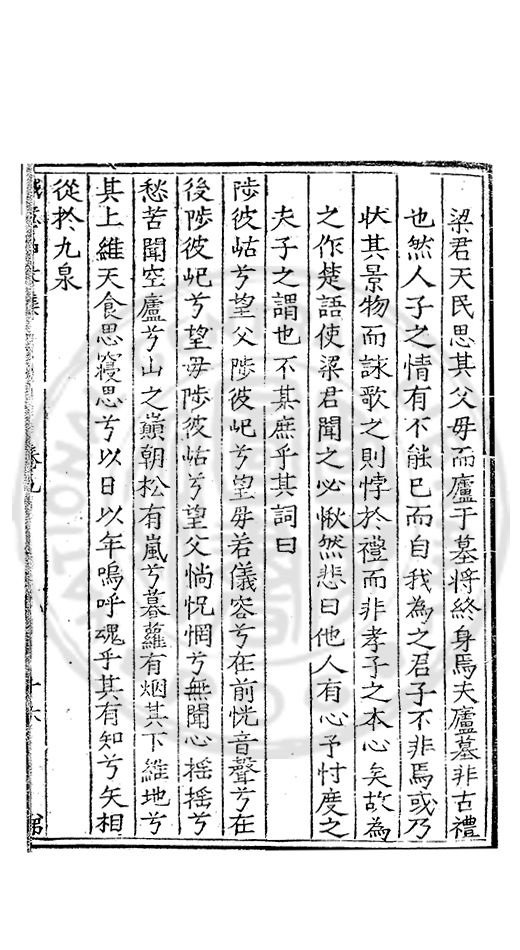 梁君天民思其父毋而廬于墓將終身焉夫廬墓非古禮
也然人子之情有不能已而自我為之君子不非焉或乃
狀其景物而詠歌之則悖於禮而非孝子之本心矣故為
之作楚語使梁君聞之必愀然悲曰他人有心予忖度之
夫子之謂也不其庶乎其詞曰
陟彼岵兮望父陟彼屺兮望毋若儀容兮在前恍音聲兮在
後陟彼屺兮望毋陟彼岵兮望父惝怳惘兮無聞心搖搖兮
愁苦聞空廬兮山之巔朝松有嵐兮暮蘿有烟其下維地兮
其上維天食思寢思兮以日以年嗚呼魂乎其有知兮矢相
從於九泉